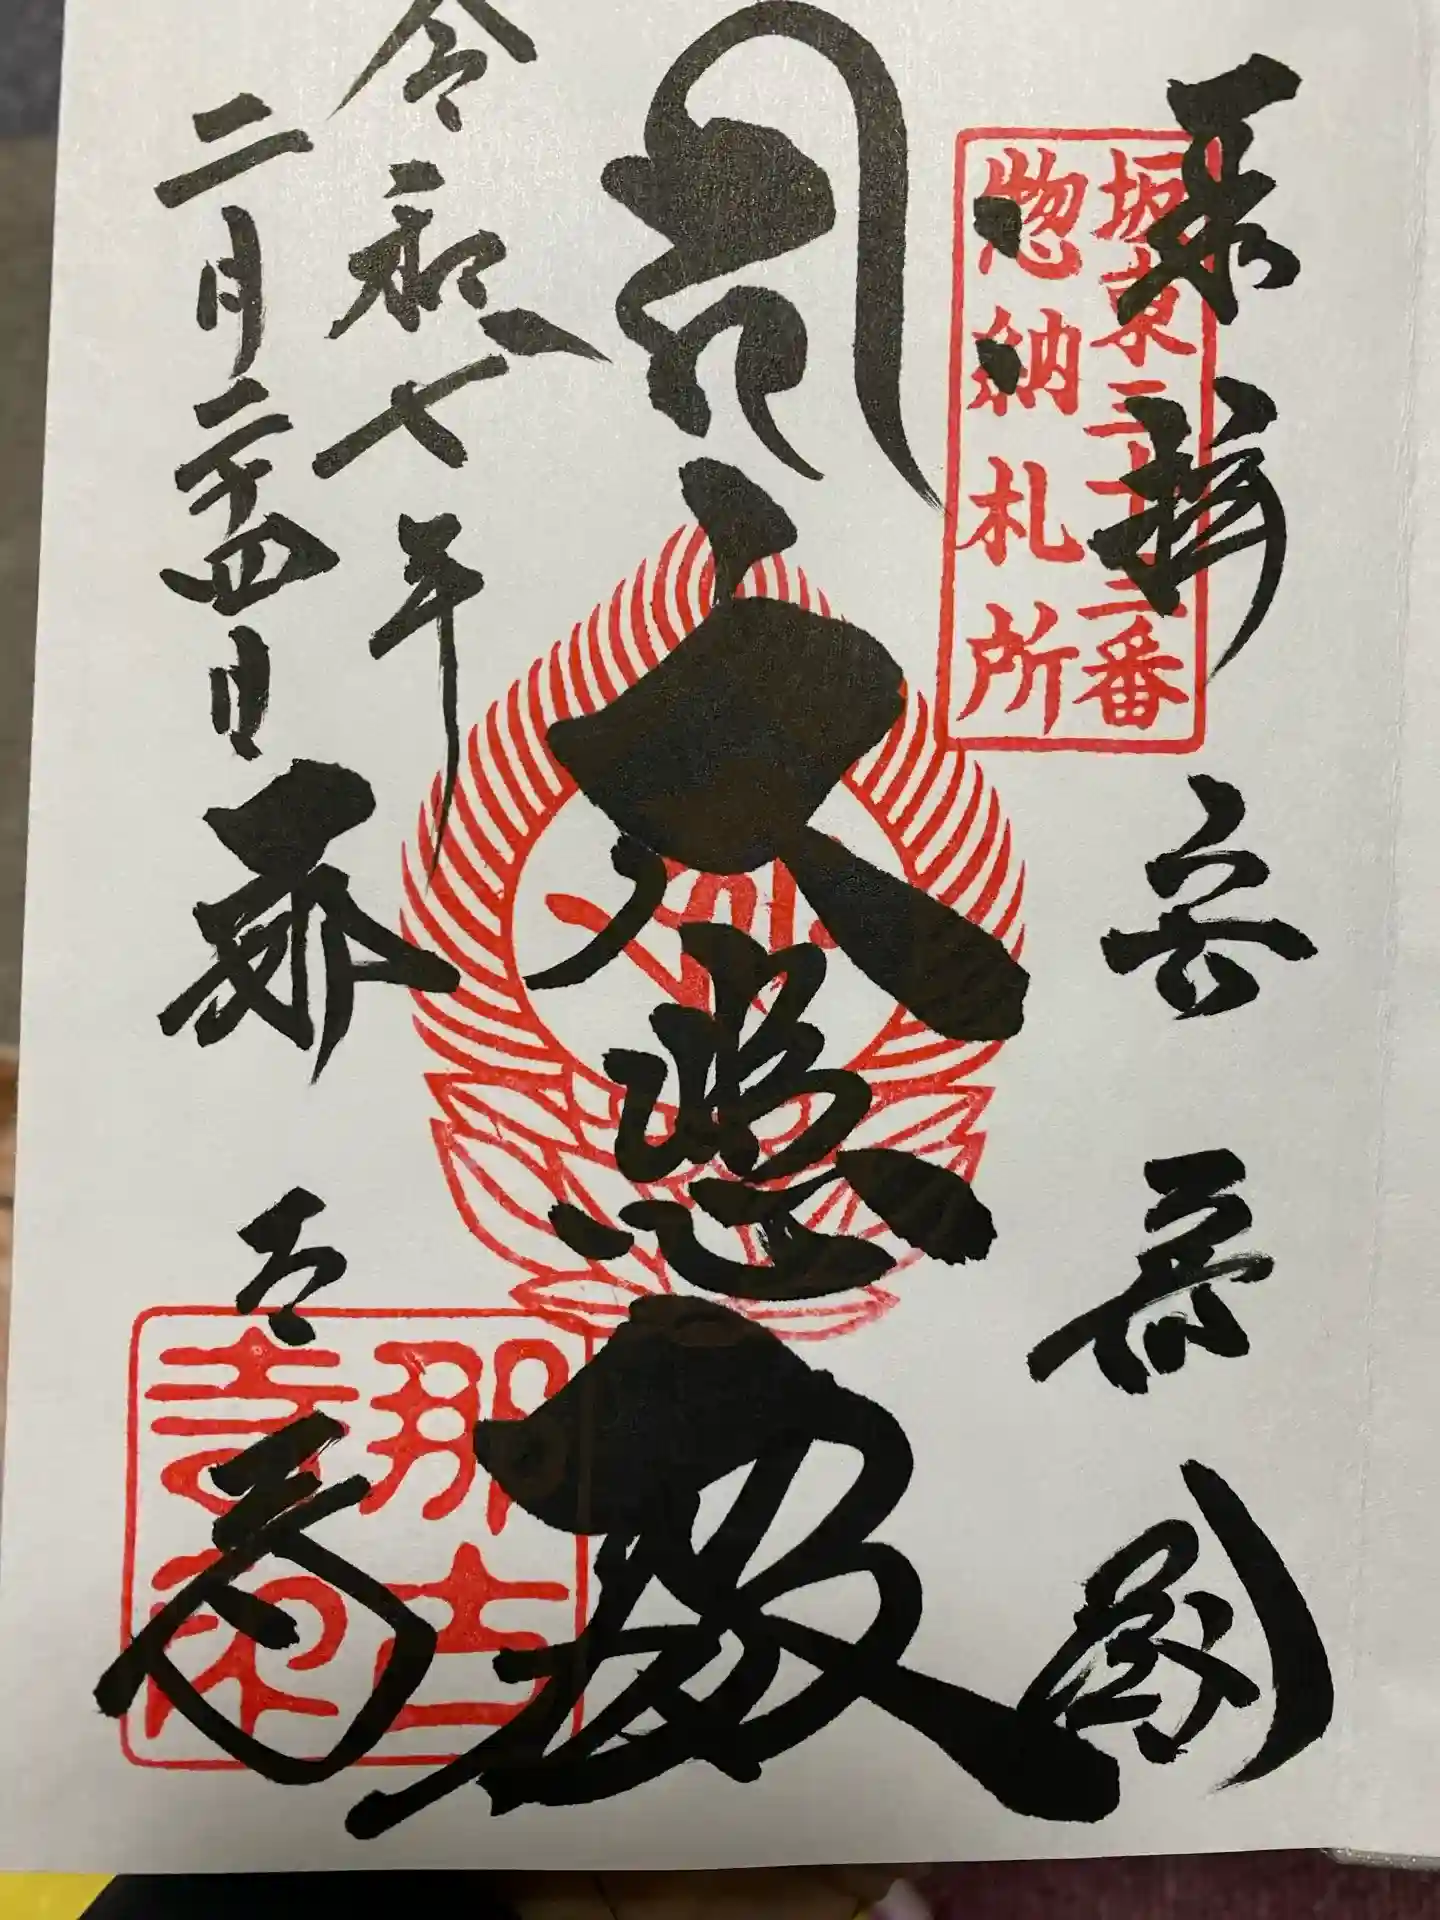 奉拝
坂東三十三番
惣納札所
安房国
大悲殿
令和七年
二月二十四日
那古寺
那古
寺印